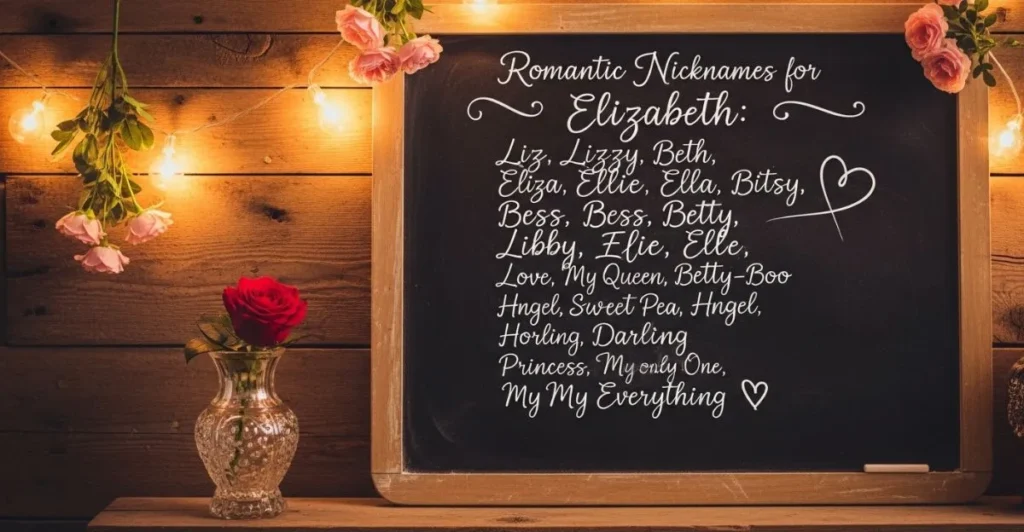 Romantic Nicknames for
Elizabeth:
Liz, Lizzy, Beth,
Eliza, Ellie, Ella, Bitsy,
Bess, Bess, Betty,
Libby, Elie, Elle,
Love, My Queen, Betty-Boo
Hngel, Sweet Pea, Hngel,
Horling, Darling
Princess, My only One,
My My Everything